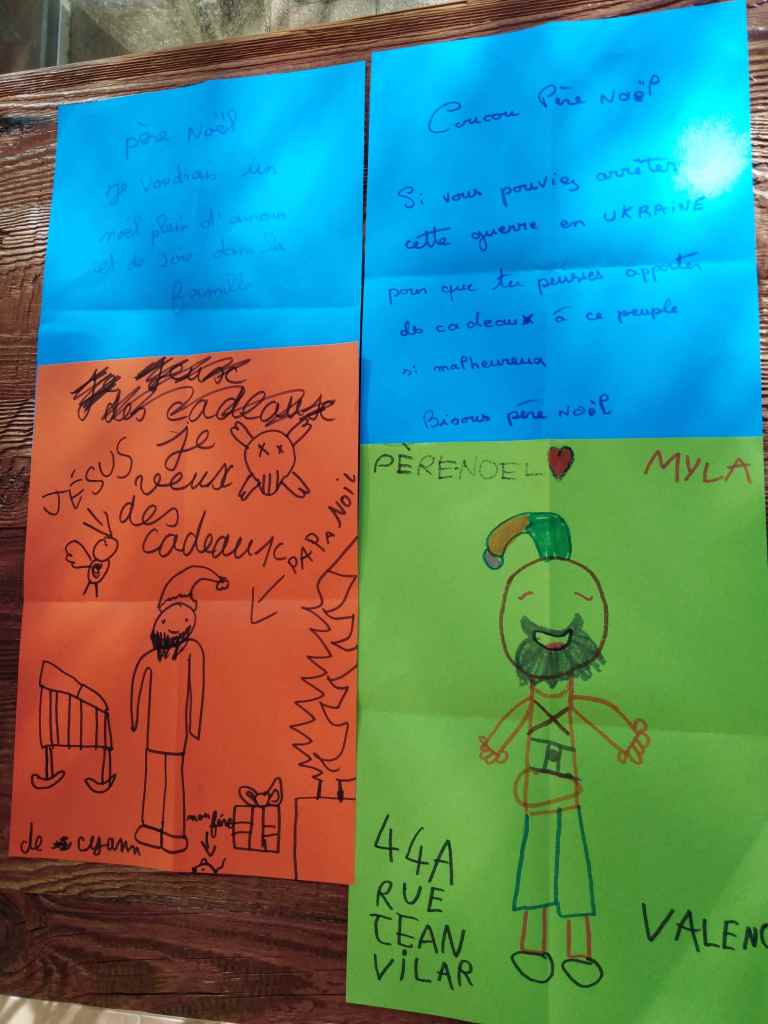 père Noël
je voudrais un
noël plein d'amour
et de joie dans la
famille
Coucou Père Noël
Si vous pouviez arrêter
cette guerre en UKRAINE
pour que tu puisses apporter
des cadeaux à ce peuple
si malheureux
Bisous père Noël
je veux
des cadeaux
JÉSUS
je
veux
des
cadeaux
PAPA NOIL
mon frère
de cyann
PÈRE-NOEL
MYLA
44A
RUE
JEAN
VILAR
VALENC